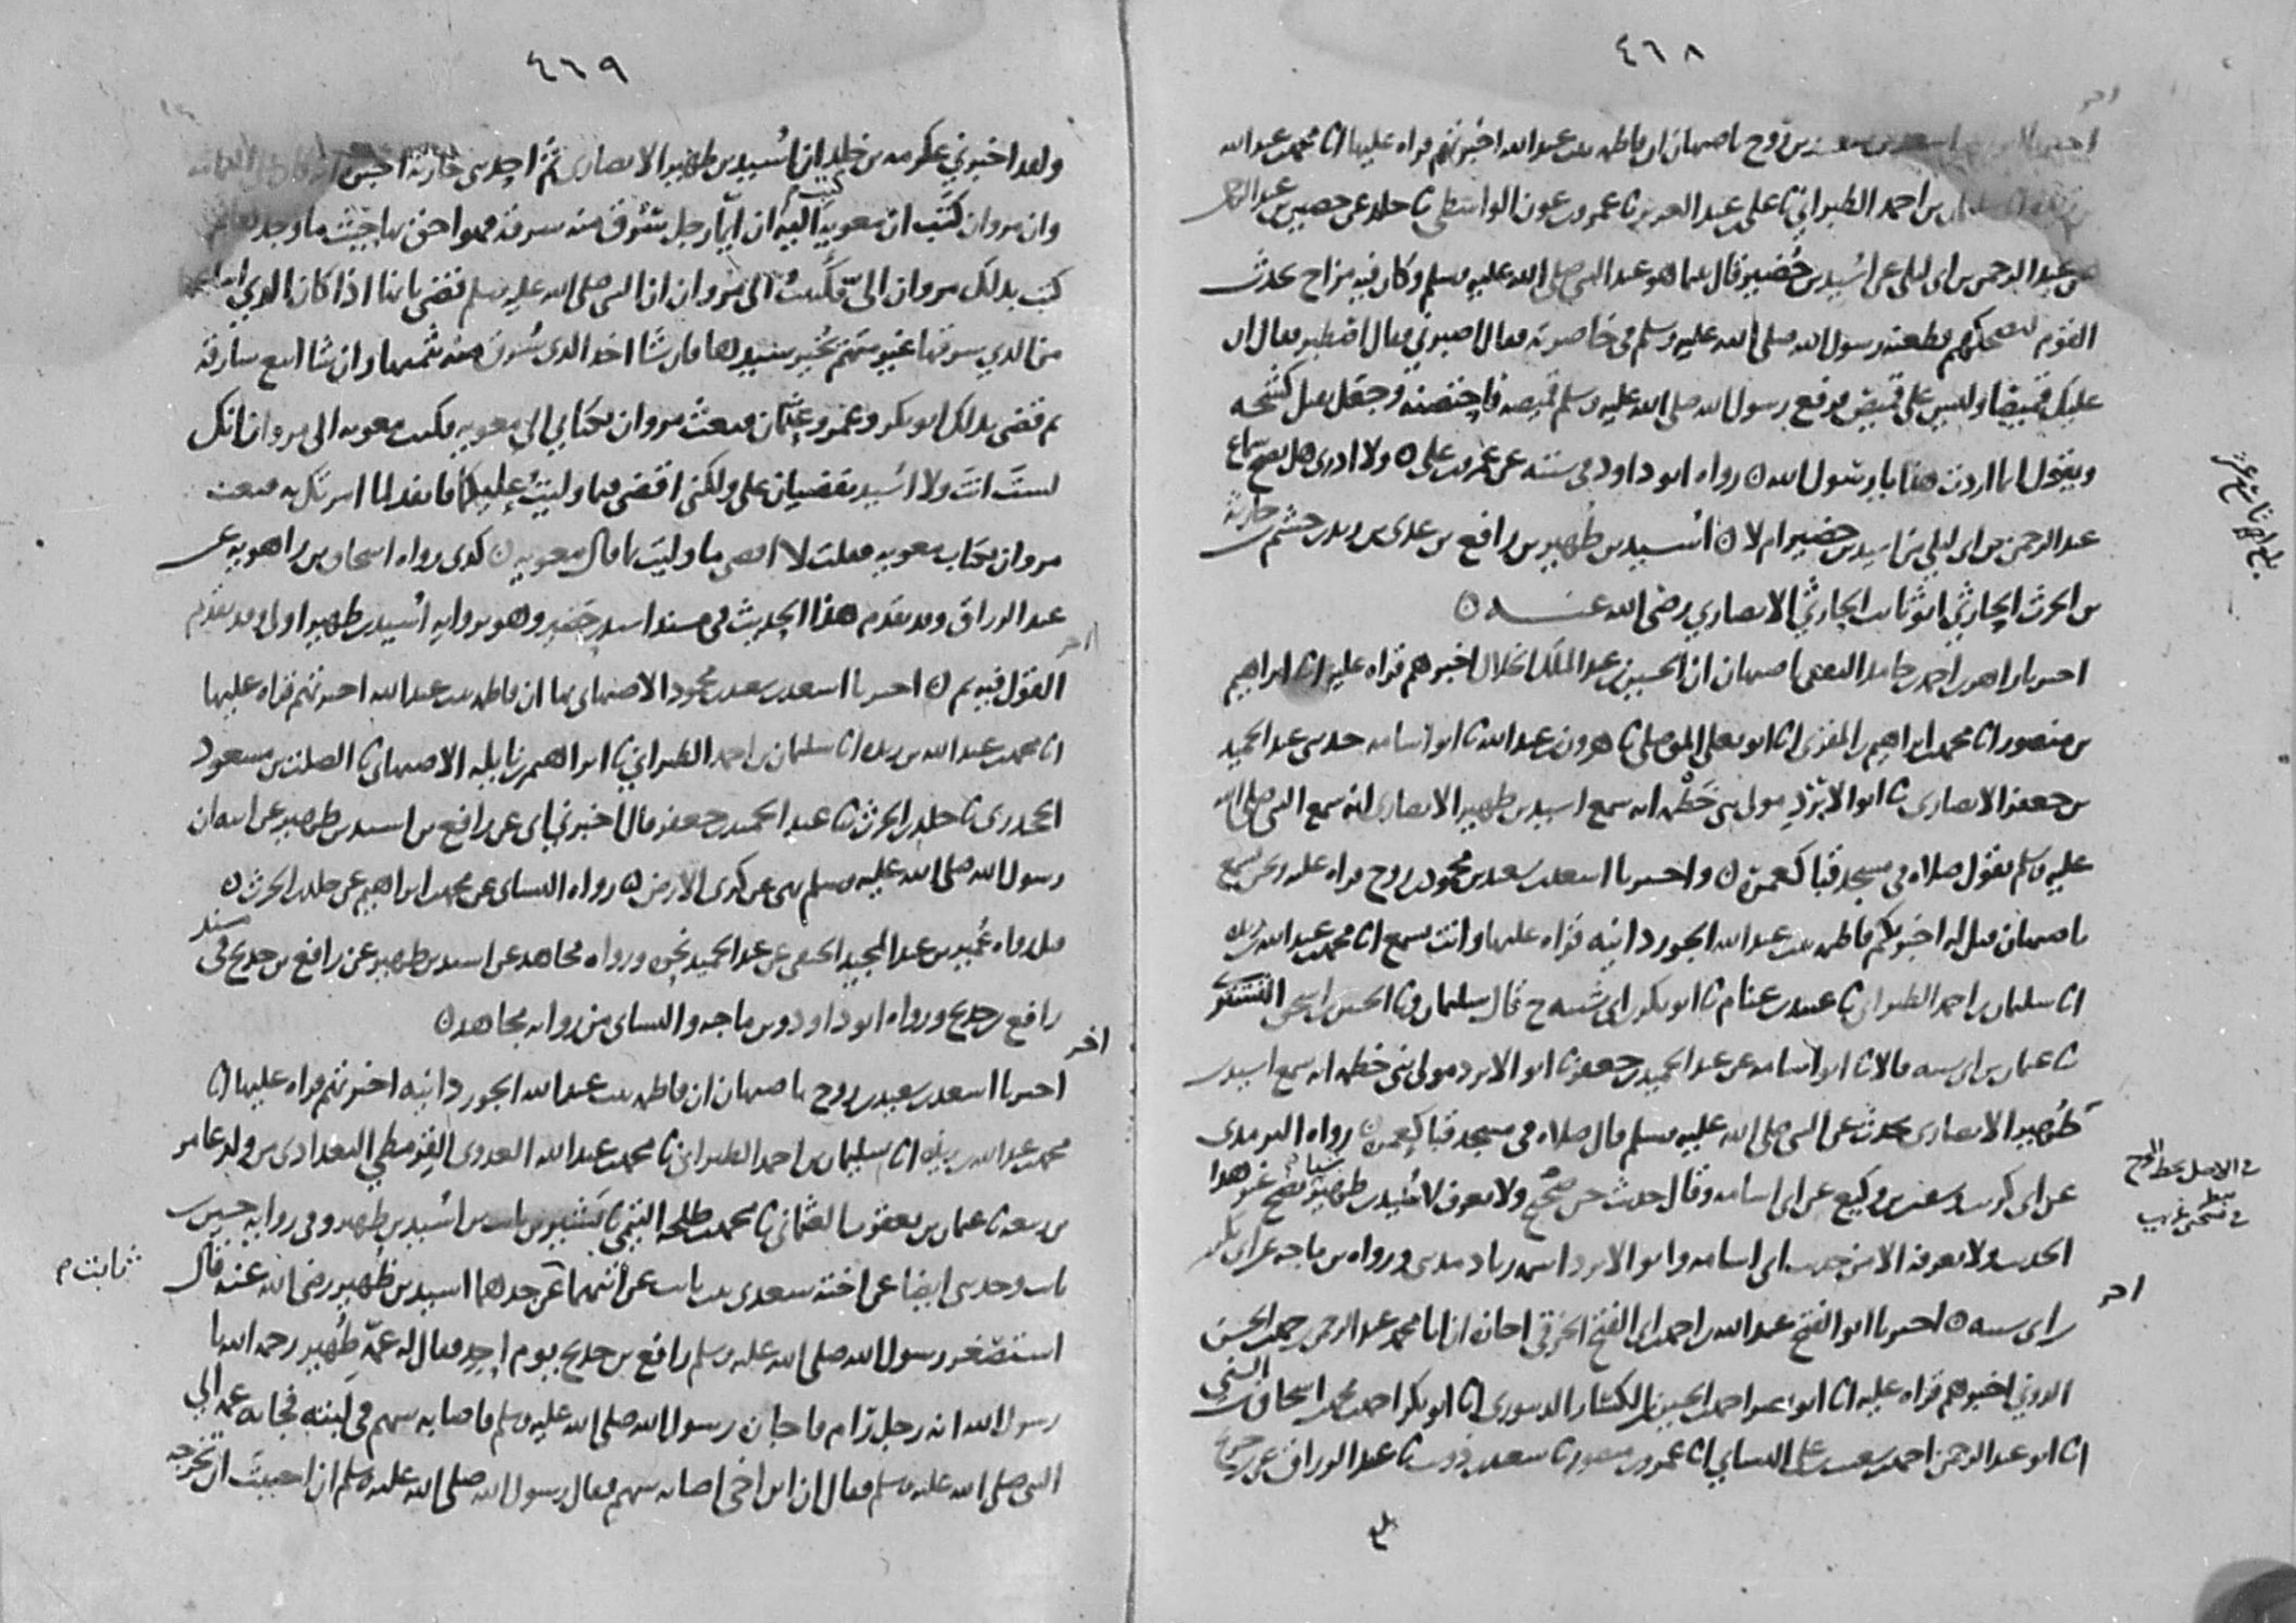 ٤٦٨
اسعد بن سعيد بن روح باصبهان ان فاطمه بنت عبد الله اخبرتهم قراه عليها انا محمد بن عبد الله
بن احمد الطبراني نا علي بن عبد العزيز نا عمرو بن عون الواسطي نا خلد عن حصين عن
عبد الرحمن بن ابي ليلى عن اسيد بن حضير قال بينما هو عند النبي صلى الله عليه وسلم وكان فيه مزاح يحدث
القوم ليضحكهم فطعنه رسول الله صلى الله عليه وسلم في خاصرته فقال اصبرني فقال اصطبر فقال ان
عليك قميصا وليس علي قميص فرفع رسول الله صلى الله عليه وسلم قميصه فاحتضنه وجعل يقبل كشحه
ويقول انما اردت هذا يا رسول الله ه رواه ابو داود في سننه عن عمرو بن علي ه ولا ادري هل يصح سماع
عبد الرحمن بن ابي ليلى من اسيد بن حضير ام لا ه اسيد بن ظهير بن رافع بن عدي بن زيد بن جشم بن حارثة
بن الحرث الحارثي ابو ثابت الحارثي الانصاري رضي الله عنه ه
اخبرنا زاهر بن احمد بن حامد الثقفي باصبهان ان الحسين بن عبد الملك الخلال اخبرهم قراه عليه انا ابراهيم
بن منصور انا محمد بن ابراهيم بن المقرئ انا ابو يعلى الموصلي نا هرون بن عبد الله نا ابو اسامه حدثني عبد الحميد
بن جعفر الانصاري نا ابو الابرد مولى بني خطمه انه سمع اسيد بن ظهير الانصاري انه سمع النبي صلى الله
عليه وسلم يقول صلاه في مسجد قبا كعمره ه واخبرنا اسعد بن سعيد بن محمود بن روح قراه عليه ونحن نسمع
باصبهان قيل له اخبركم فاطمه بنت عبد الله الجوزدانيه قراه عليها وانت تسمع انا محمد بن عبد الله بن ريذه
انا سليمن بن احمد الطبراني نا عبيد بن غنام نا ابو بكر بن ابي شيبه ح قال سليمان ونا الحسين بن اسحق التستري
نا عثمان بن ابي شيبه قالا نا ابو اسامه عن عبد الحميد بن جعفر نا ابو الابرد مولى بني خطمه انه سمع اسيد بن
ظهير الانصاري يحدث عن النبي صلى الله عليه وسلم قال صلاه في مسجد قبا كعمره ه رواه الترمذي
عن ابي كريب وسفين بن وكيع عن ابي اسامه وقال حديث حسن صحيح ولا يعرف لاسيد بن ظهير شيا يصح غير هذا
الحديث ولا نعرفه الا من حديث ابي اسامه وابو الابرد اسمه زياد مديني ورواه بن ماجه عن ابي بكر
بن ابي شيبه ه اخبرنا ابو الفتح عبد الله بن احمد بن ابي الفتح الخرقي اجازه ان ابا محمد عبد الرحمن بن حمد بن الحسن
الدوني اخبرهم قراه عليه انا ابو نصر احمد بن الحسين بن الكسار الدينوري انا ابو بكر احمد بن محمد بن اسحاق بن السني
انا ابو عبد الرحمن احمد بن شعيب بن علي النساي انا عمرو بن منصور نا سعيد بن ذويب نا عبد الرزاق عن بن جريج
في الاصل بخط
اخر
٤٦٩
ولقد اخبرني عكرمه بن خلد ان اسيد بن ظهير الانصاري ثم احد بني حارثة اخبره
وان مروان كتب ان معويه كتب اليه ان ايما رجل سرق منه سرقه فهو احق بها حيث ما وجدها
كتب بذلك مروان الي فكتبت الى مروان ان النبي صلى الله عليه وسلم قضى بانه اذا كان الذي ابتاعها
من الذي سرقها غير متهم يخير سيدها فان شا اخذ الذي سرق منه بثمنها وان شا اتبع سارقه
ثم قضى بذلك ابو بكر وعمر وعثمان فبعث مروان بكتابي الى معويه فكتب معويه الى مروان انك
لست انت ولا اسيد تقضيان علي ولكني اقضي فيما وليت عليكما فانفذ لما امرتك به فبعث
مروان بكتاب معويه فقلت لا اقضي ما وليت بما قال معويه ه كذى رواه اسحاق بن راهويه عن
عبد الرزاق وقد تقدم هذا الحديث في مسند اسيد بن حضير وهو برواية اسيد بن ظهير اولى وقد تقدم
القول فيه ثم ه اخبرنا اسعد بن سعيد بن محمود الاصبهاني بها ان فاطمه بنت عبد الله اخبرتهم قراه عليها
انا محمد بن عبد الله بن ريذه انا سليمان بن احمد الطبراني نا ابراهيم بن نايله الاصبهاني نا الصلت بن مسعود
الجحدري نا خلد بن الحرث نا عبد الحميد بن جعفر قال اخبرني ابي عن رافع بن اسيد بن ظهير عن ابيه ان
رسول الله صلى الله عليه وسلم نهى عن كرى الارض ه رواه النساي عن محمد بن ابراهيم عن خلد بن الحرث ه
قيل رواه عبيد بن عبد المجيد الحنفي عن عبد الحميد نحوه ورواه مجاهد عن اسيد بن ظهير عن رافع بن خديج في مسند
رافع بن خديج ورواه ابو داود وبن ماجه والنساي من روايه مجاهد ه
اخر
اخبرنا اسعد بن سعيد بن روح باصبهان ان فاطمه بنت عبد الله الجوزدانيه اخبرتهم قراه عليها انا
محمد بن عبد الله بن ريذه انا سليمان بن احمد الطبراني نا محمد بن عبد الله العدوي القرمطي البغدادي من ولد عامر
بن ربيعه نا عثمان بن يعقوب العثماني نا محمد بن طلحه التيمي نا بشير بن ثابت بن اسيد بن ظهير وفي روايه حسين بن
ثابت وحدثني ايضا عن اخته سعدى بنت ثابت عن ابيهما عن جدهما اسيد بن ظهير رضي الله عنه قال
ثابت م
استصغر رسول الله صلى الله عليه وسلم رافع بن خديج يوم احد فقال له عمه ظهير رحمه الله يا
رسول الله انه رجل رام فاجازه رسول الله صلى الله عليه وسلم فاصابه سهم في لبته فجا به عمه الى
النبي صلى الله عليه وسلم فقال ان ابن اخي اصابه سهم فقال رسول الله صلى الله عليه وسلم ان احببت ان تخرجه